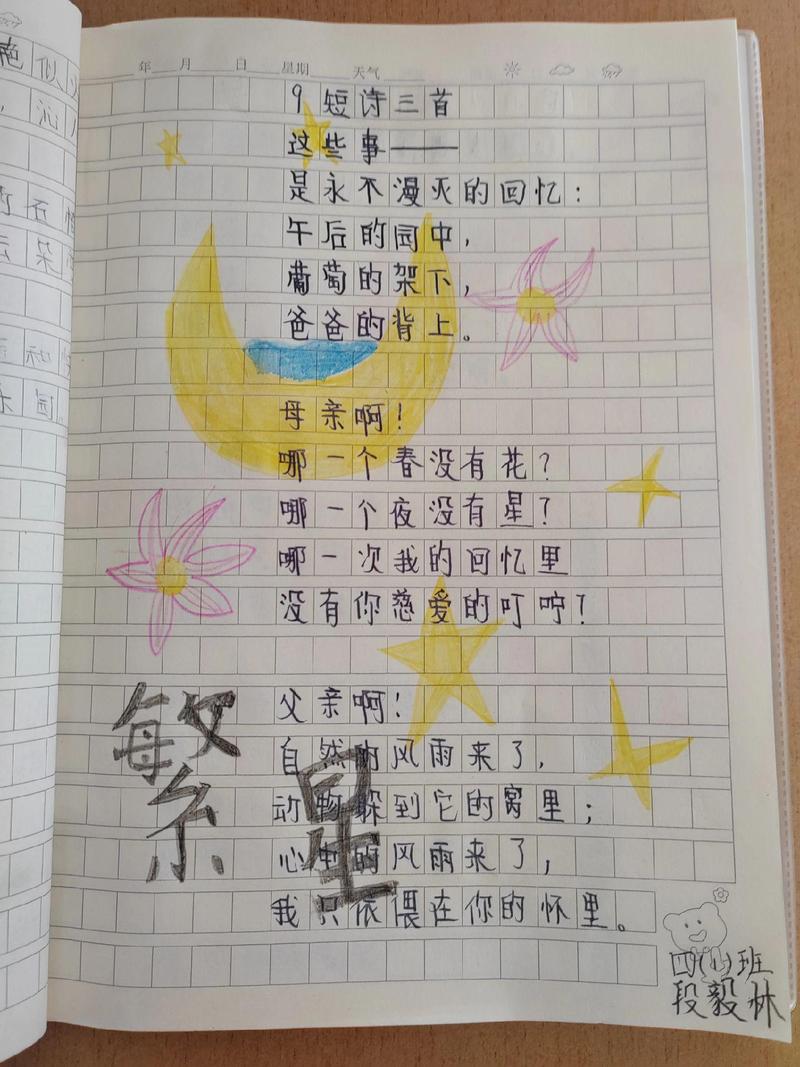 艳似火
，沁人
年 月 日 星期 天气
9 短诗三首
这些事——
是永不漫灭的回忆：
午后的园中，
葡萄的架下，
爸爸的背上。
母亲啊！
哪一个春没有花？
哪一个夜没有星？
哪一次我的回忆里
没有你慈爱的叮咛？
父亲啊！
自然的风雨来了，
动物躲到它的窝里；
心中的风雨来了，
我只依偎在你的怀里。
繁星
四(1)班
段毅林